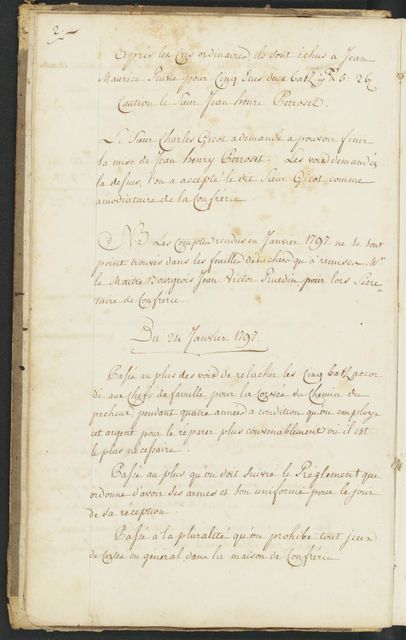 2.
Après les Cris ordinaires ils sont échus à Jean
Maurice Ruedin pour Cinq Ecus deux batz 5. 2
Caution le Sieur Jean henri Perroset.
Le Sieur Charles Gicot a demandé a pouvoir finir
la mise de Jean henry Perroset. Les voix demandées
la desus, l'on a accepté le dit Sieur Gicot comme
amodiataire de la Confrérie
NB Les Comptes rendus en Janvier 1797. ne se sont
point trouvés dans les feuilles détachées qu'a remises Mr
le Maitre Bourgeois Jean Victor Ruedin pour lors Sécre-
taire de Confrérie
Du 24 Janvier 1797.
Passé au plus des voix de relacher les Cinq batz accor-
dé aux Chefs de famille, pour la Corvée du Chemin du
pecheur, pendant quatre années a condition qu'on employe
cet argent pour le réparer plus convenablement où il est
le plus necessaire.
Passé au plus qu'on doit suivre le Réglement que
ordonne d'avoir ses armes et son uniforme pour le jour
de sa reception
Passé a la pluralité qu'on prohibe tout jeux
de Cartes en général dans la maison de Confrérie